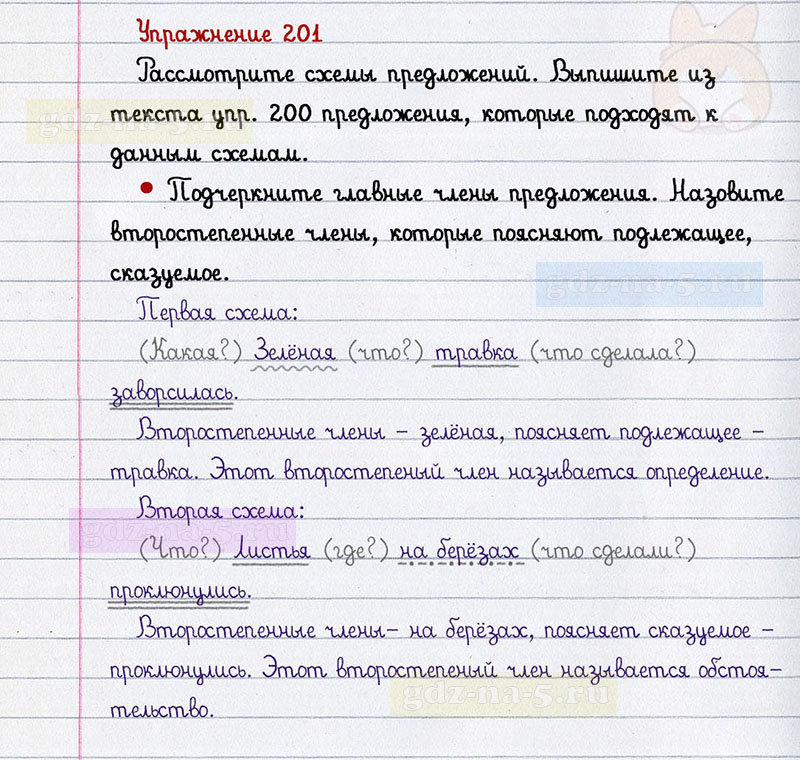 Упражнение 201
Рассмотрите схемы предложений. Выпишите из
текста упр. 200 предложения, которые подходят к
данным схемам.
• Подчеркните главные члены предложения. Назовите
второстепенные члены, которые поясняют подлежащее,
сказуемое.
Первая схема:
(Какая?) Зелёная (что?) травка (что сделала?)
заворсилась.
Второстепенные члены – зелёная, поясняет подлежащее –
травка. Этот второстепеный член называется определение.
Вторая схема:
(Что?) Листья (где?) на берёзах (что сделали?)
проклюнулись.
Второстепенные члены– на берёзах, поясняет сказуемое –
проклюнулись. Этот второстепеный член называется обстоя–
тельство.
gdz-na-5.ru
gdz-na-5.ru
gdz-na-5.ru
gdz-na-5.ru